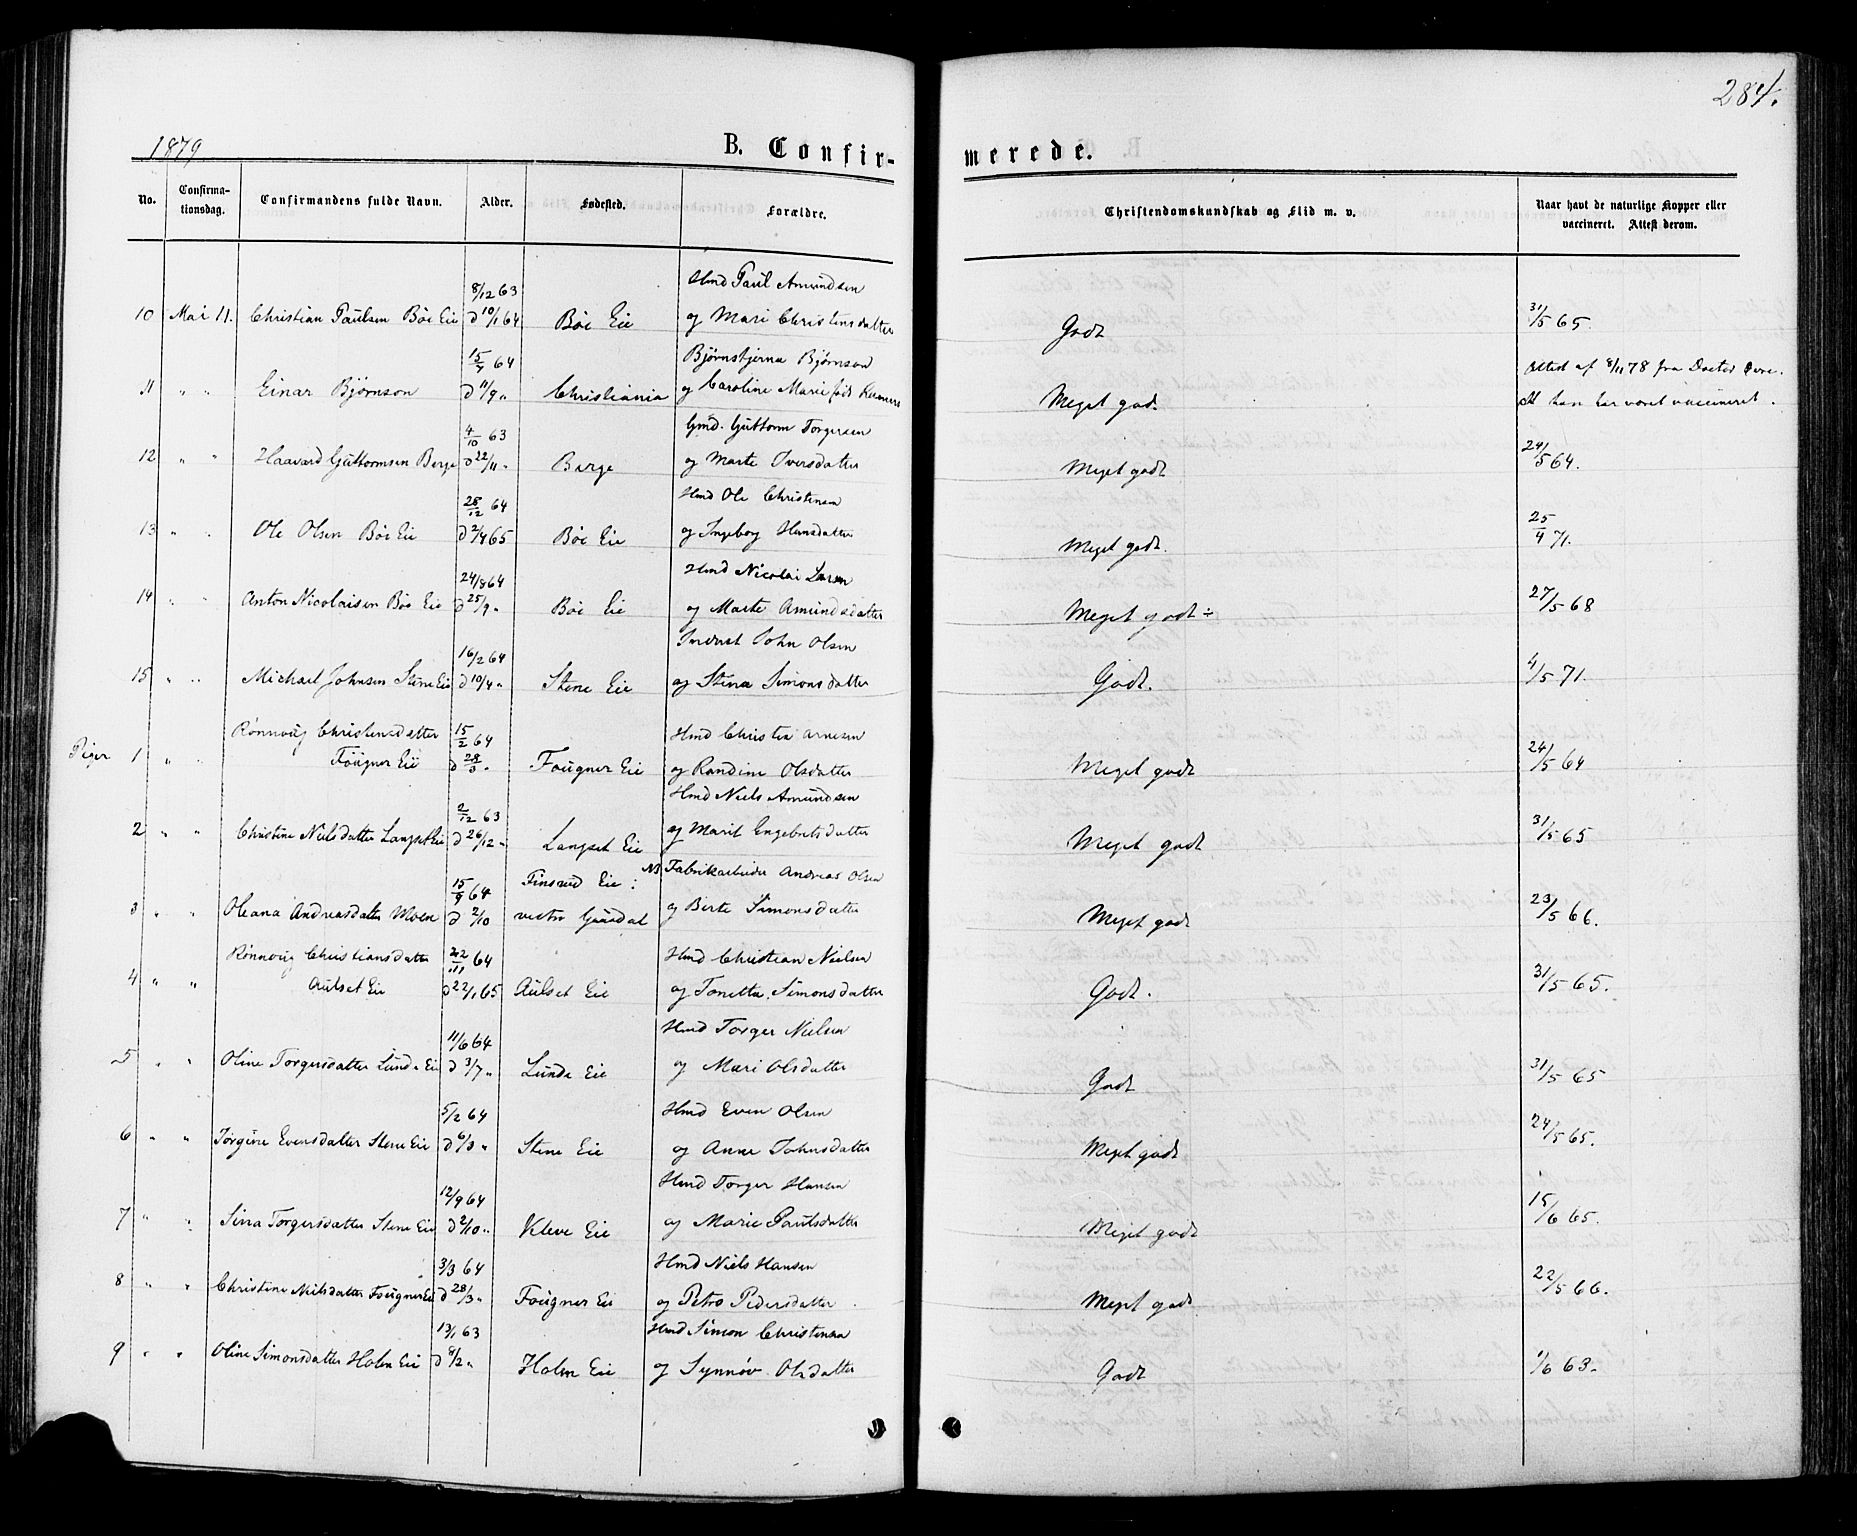 284.
1879
B. Confirmerede.
No. Confirmationsdag. Confirmandens fulde Navn. Alder. Fødested. Forældre. Christendomskundskab og Flid m. v. Naar havt de naturlige Kopper eller vaccineret. Attest derom.
8/12 63 Hmd Paul Amundsen
10 Mai 11. Christian Paulsen Böe Eie d 10/1 64 Böe Eie og Mari Christensdatter Godt 31/5 65.
15/7 64 Bjørnstjerne Bjørnson Attest af 8/11 78 fra Doctor
11 " " Einar Bjørnson d 11/9 " Christiania og Caroline Marie født Reimers Meget godt. At han har været vaccineret.
4/10 63 Gmd. Guttorm Torgersen
12 " " Haavard Guttormsen Berge d 22/11 " Berge og Marte Iversdatter Meget godt 24/5 64.
28/12 64 Hmd Ole Christensen
13 " " Ole Olsen Böe Eie d 2/4 65 Böe Eie og Ingeborg Hansdatter Meget godt. 25/4 71.
24/8 64 Hmd Nicolai Larsen
14 " " Anton Nicolaisen Böe Eie d 25/9 " Böe Eie og Marte Amundsdatter Meget godt ÷ 27/5 68
16/2 64 Inderst John Olsen
15 " " Michael Johnsen Stene Eie d 10/4 " Stene Eie og Stina Simonsdatter Godt. 4/5 71.
Rønnoug Christensdatter 15/2 64 Hmd Christen Arnesen
Piger 1 " " Fougner Eie d 28/3 " Fougner Eie og Randine Olsdatter Meget godt 24/5 64
2/12 63 Hmd Niels Amundsen
2 " " Christine Nielsdatter Langset Eie d 26/12 " Langset Eie og Marit Engebretsdatter Meget godt 31/5 65
15/9 64 Finsrud Eie : NB Fabrikarbeider Andreas Olsen
3 " " Oleana Andreasdatter Moen d 2/10 vestre Gausdal og Berte Simonsdatter Meget godt 23/5 66.
Rønnoug Christiansdatter 22/11 64 Hmd Christian Nielsen
4 " " Aulset Eie d 22/1 65 Aulset Eie og Tonetta Simonsdatter Godt. 31/5 65.
11/6 64 Hmd Torger Nielsen
5 " " Oline Torgersdatter Lunde Eie d 3/7 " Lunde Eie og Mari Olsdatter Godt 31/5 65
5/2 64 Hmd Even Olsen
6 " " Jørgine Evensdatter Stene Eie d 6/3 " Stene Eie og Anne Johnsdatter Meget godt 24/5 65.
12/9 64 Hmd Torger Hansen
7 " " Sina Torgersdatter Stene Eie d 2/10 " Kleve Eie og Marie Paulsdatter Meget godt 15/6 65.
3/3 64 Hmd Niels Hansen
8 " " Christine Nielsdatter Fougner Eie d 28/3 " Fougner Eie og Petro Pedersdatter Meget godt 22/5 66.
13/1 63 Hmd Simon Christensen
9 " " Oline Simonsdatter Holm Eie d 8/2 " Holm Eie og Synnøv Olsdatter Godt 1/6 63.